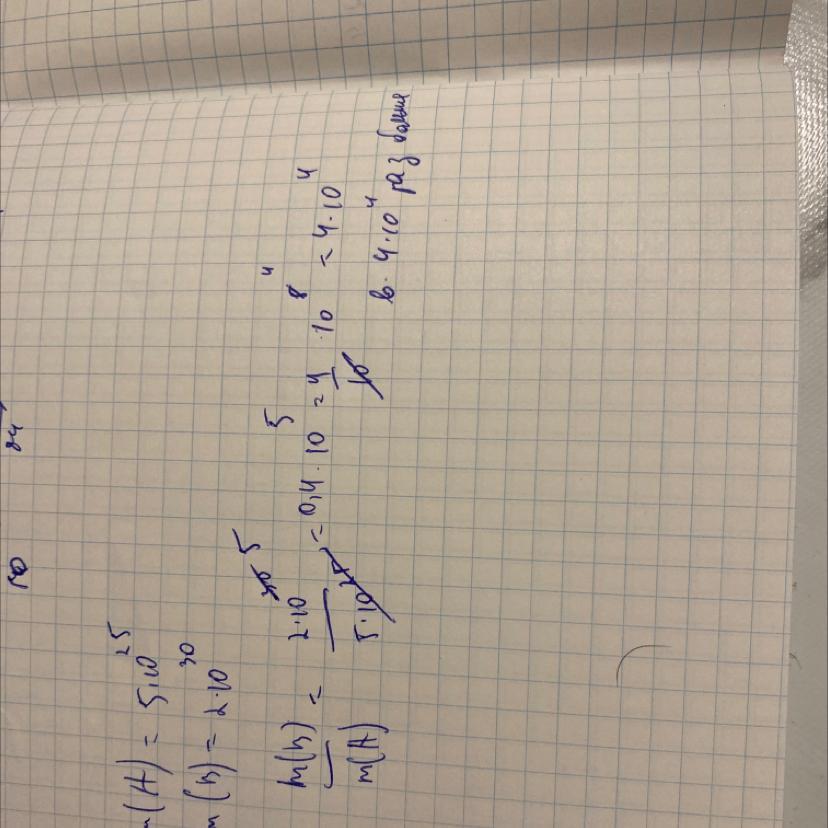 m(A) = 5·10^25
m(B) = 2·10^30
m(B)/m(A) = 2·10^5/5 = 0,4·10^5 = 4/10·10^5 = 4·10^4
в 4·10^4 раз больше